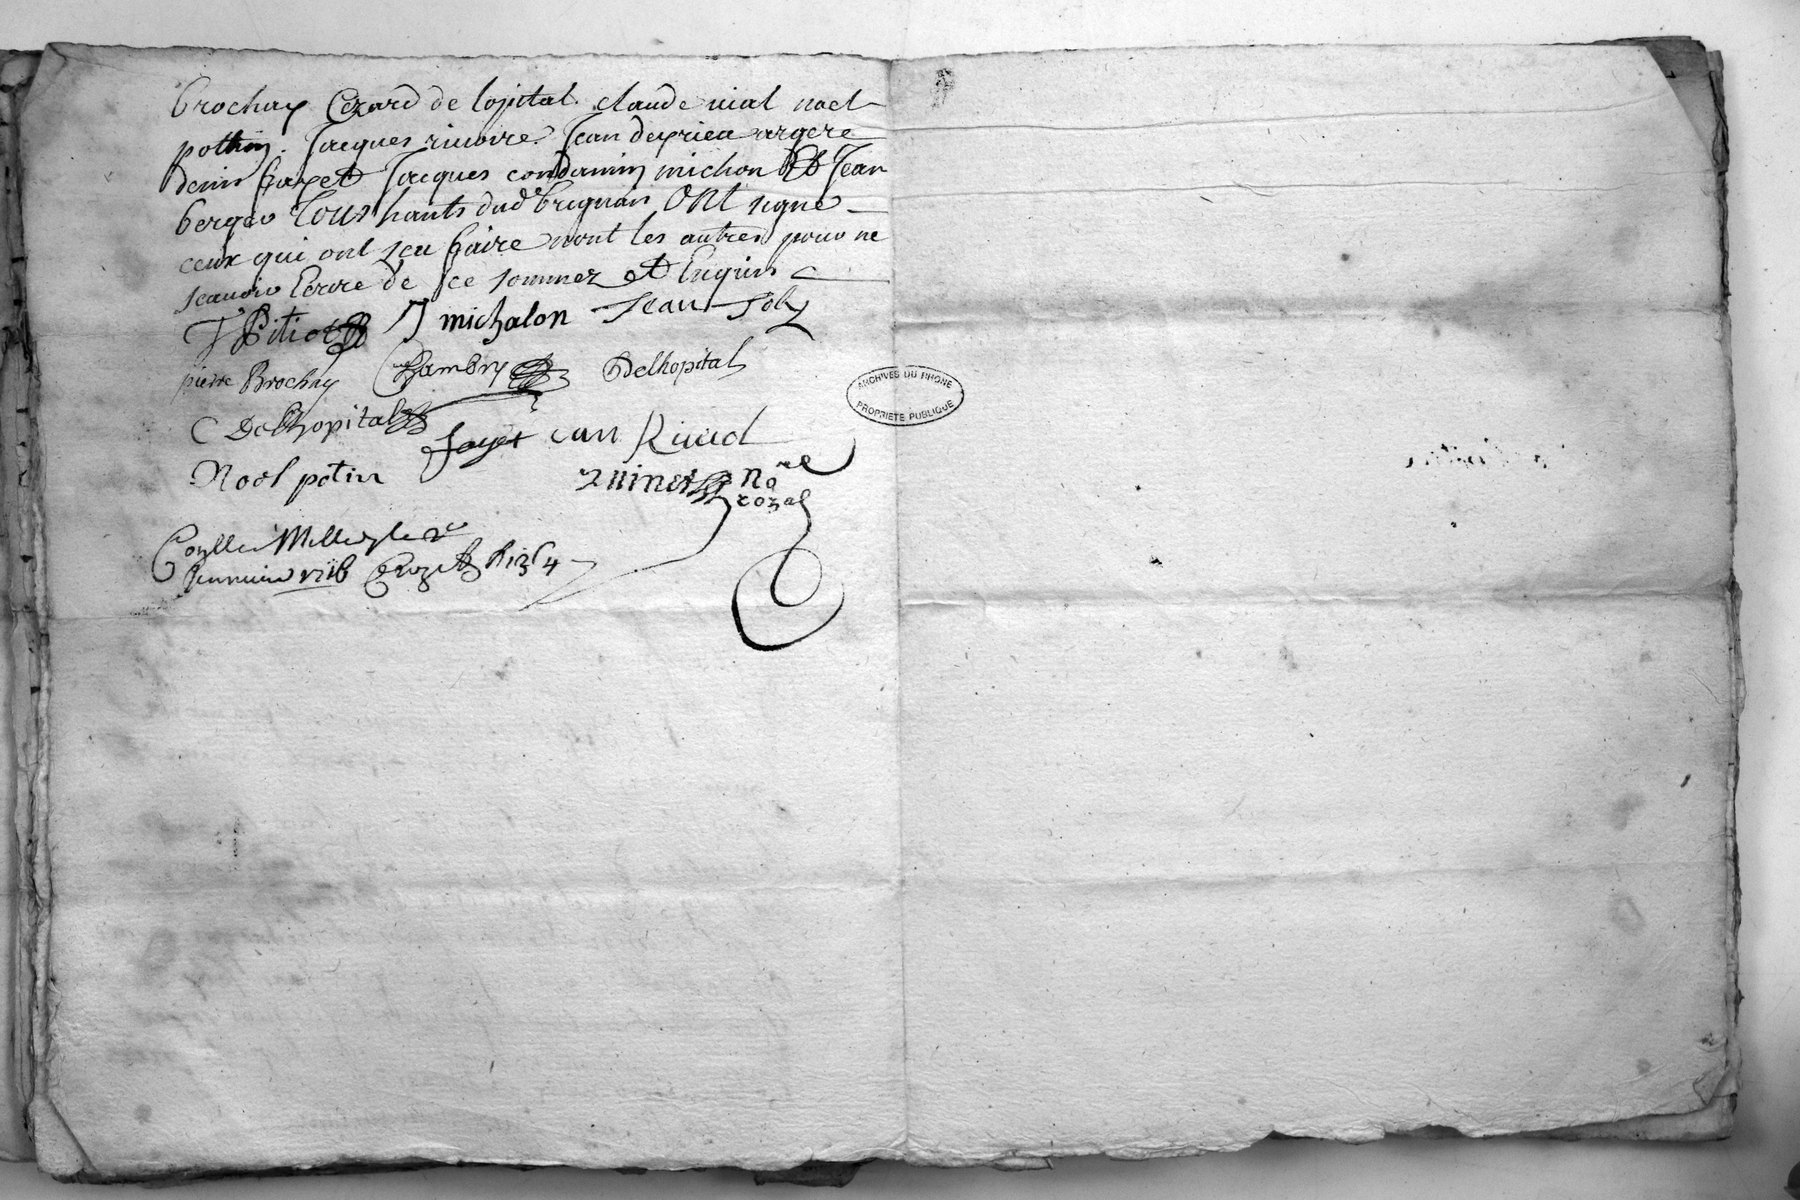 brochay Cezard de lopital claude vial noel
pothin. Jacques rivoire. Jean duprieu argere
denis fayet Jacques condamin michon Et Jean
berger Tous hants dud brignais Ont signé
ceux qui ont sceu faire nont les autres pour ne
scavoir Ecrire de ce sommez et Enquis
Pitiot J michalon Jean Joly
pierre Brochay Chambry Delhopital
C Delhopital fayet Jean Rivud
Noel potin nore
rozal
Con
Janvier 1716 Crozet R 13 s 4
ARCHIVES DU RHONE
PROPRIETE PUBLIQUE